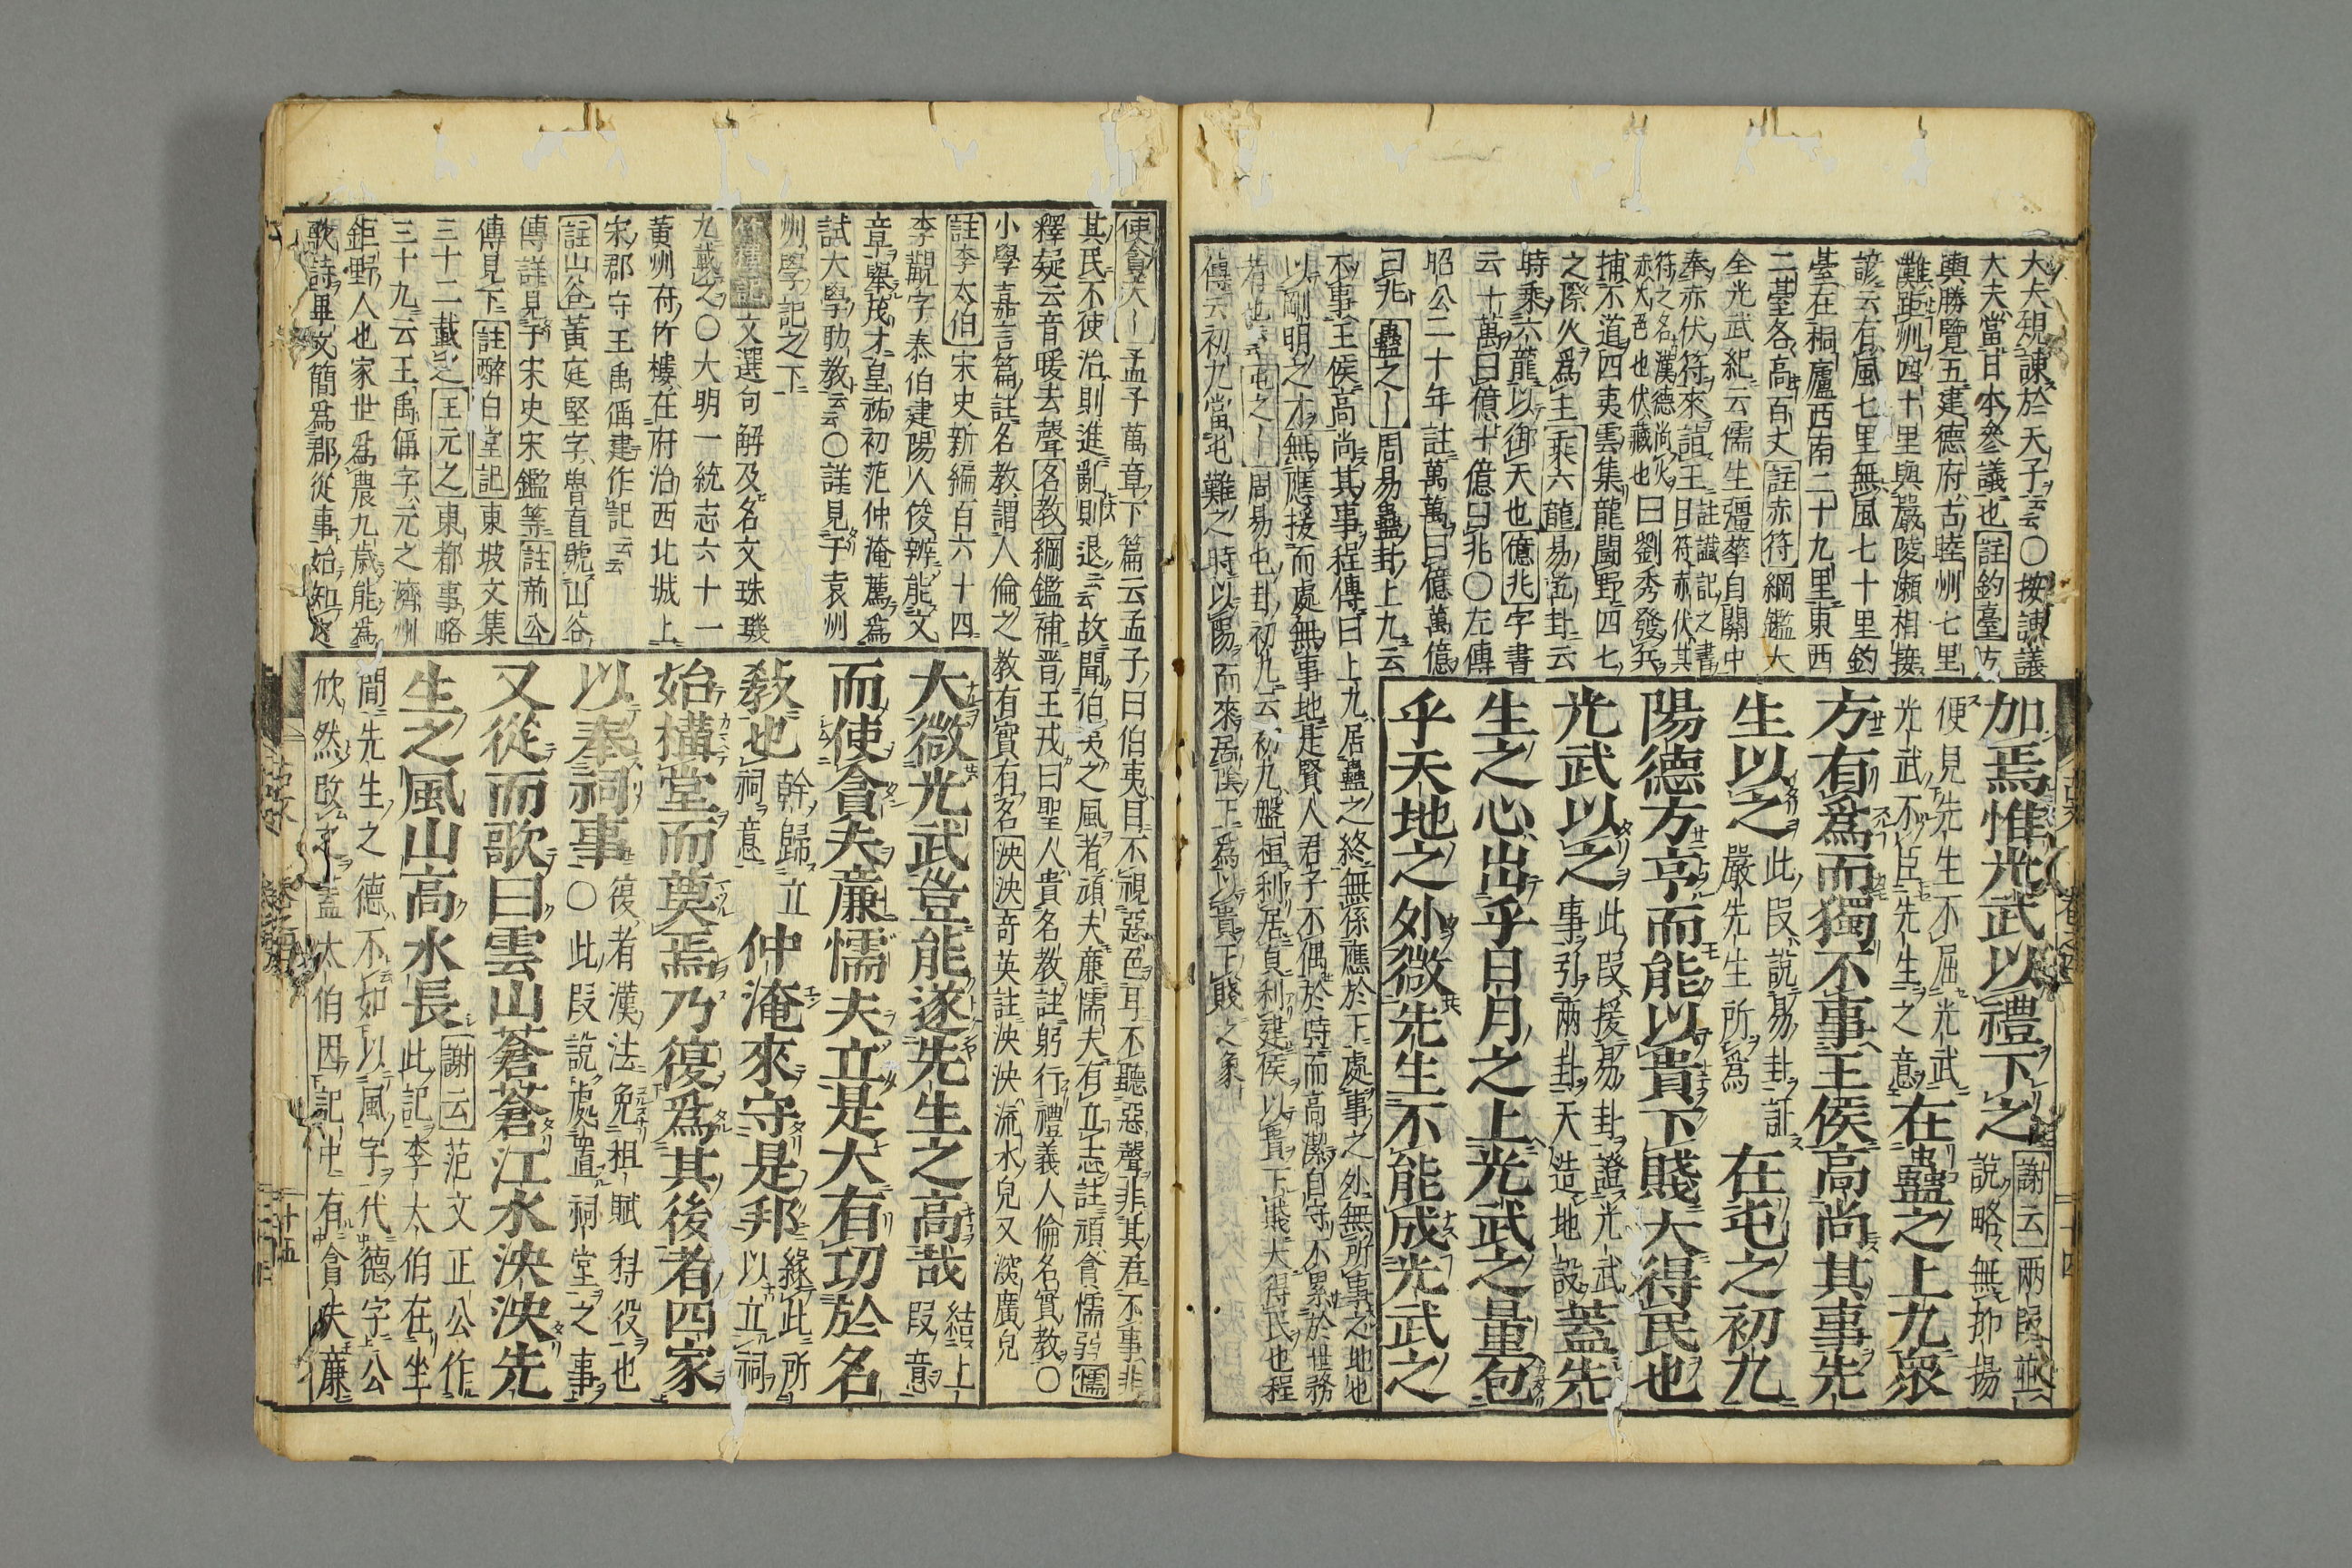 大夫規諫於天子云云〇按諫議
大夫當甘本參議也註釣臺方
輿勝覽五建德府古睦州七里
灘距州四十里與嚴陵瀬相接
諺云有風七里無風七十里釣
臺在桐廬西南二十九里東西
二臺各高百丈註赤符綱鑑大
全光武紀云儒生彊華自關中
奉赤伏符來詣王曰劉秀發兵
捕不道四夷雲集龍闘野四七
之際火爲主乘六龍易乾卦云
時乘六龍以御天也億兆字書
云十萬曰億十億曰兆〇左傳
昭公二十年註萬萬曰億萬億
曰兆蠱之〡周易蠱卦上九云
不事王侯高尚其事程傳曰上九居蠱之終無係應於下處事之外無所事之地也
以剛明之才無應援而處無事地是賢人君子不偶於時而高潔自守不累於世務
者也云屯之〡周易屯卦初九云初九盤桓利居貞利建侯以貴下賤大得民也程
傳云初九當屯難之時以陽而來居陰下爲以貴下賤之象
加焉惟光武以禮下之謝云兩段並
說略無抑揚
便見先生不屈光武
光武不臣先生之意在蠱之上九衆
方有爲而獨不事王侯高尚其事先
生以之此段說易卦証
嚴先生所爲在屯之初九
陽德方亨而能以貴下賤大得民也
光武以之此段援易卦證光武
事引兩卦天造地設蓋先
生之心出乎日月之上光武之量包
乎天地之外微先生不能成光武之
使貪夫〡孟子萬章下篇云孟子曰伯夷目不視惡色耳不聽惡聲非其君不事非
其民不使治則進亂則退云云故聞伯夷之風者頑夫廉懦夫有立志註頑貪懦弱懦
釋疑云音暖去聲名教綱鑑補晋王戎曰聖人貴名教註躬行禮義人倫名實教〇
小學嘉言篇註名教謂人倫之教有實有名泱泱奇英註泱泱流水皃又深廣皃
註李太伯宋史新編百六十四
李觀字泰伯建陽人俊辨能文
章舉茂才皇祐初范仲淹薦爲
試太學助教云云〇詳見于袁州
州學記之下
竹樓記文選句解及名文珠璣
九載之〇大明一統志六十一
黃州府竹樓在府治西北城上
宋郡守王禹偁建作記云云
註山谷黃庭堅字魯直號山谷
傳詳見于宋史宋鑑等註荊公
傳見下註醉白堂記東坡文集
三十二載之王元之東都事略
三十九云王禹偁字元之濟州
鉅野人也家世爲農九歲能爲
歌詩畢文簡爲郡從事始知之
大微光武豈能遂先生之高哉結上
段意
而使貪夫廉懦夫立是大有功於名
敎也幹歸立
祠意仲淹來守是邦緣此所
以立祠
始構堂而奠焉乃復爲其後者四家
以奉祠事復者漢法免租賦科役也
〇此段說處置祠堂之事
又從而歌曰雲山蒼蒼江水泱泱先
生之風山高水長謝云范文正公作
此記李太伯在坐
間先生之德不如以風字代德字公
欣然改之蓋太伯因記中有貪夫廉